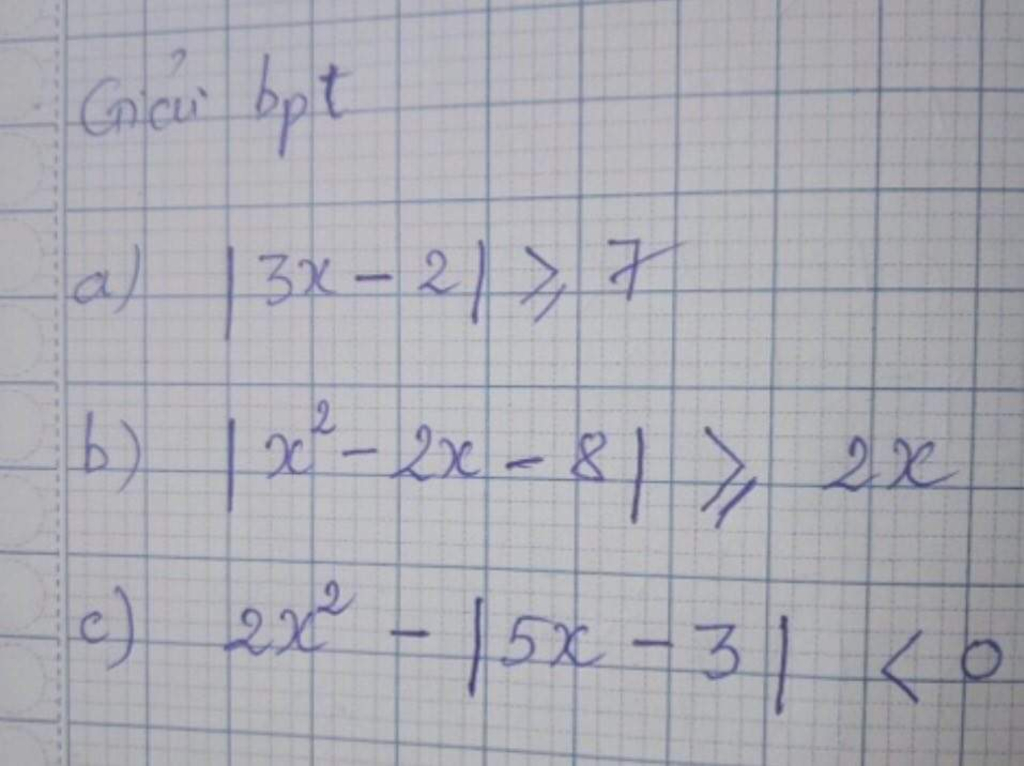 Giải bpt
a) |3x - 2| ⩾ 7
b) |x² - 2x - 8| ⩾ 2x
c) 2x² - |5x - 3| < 0